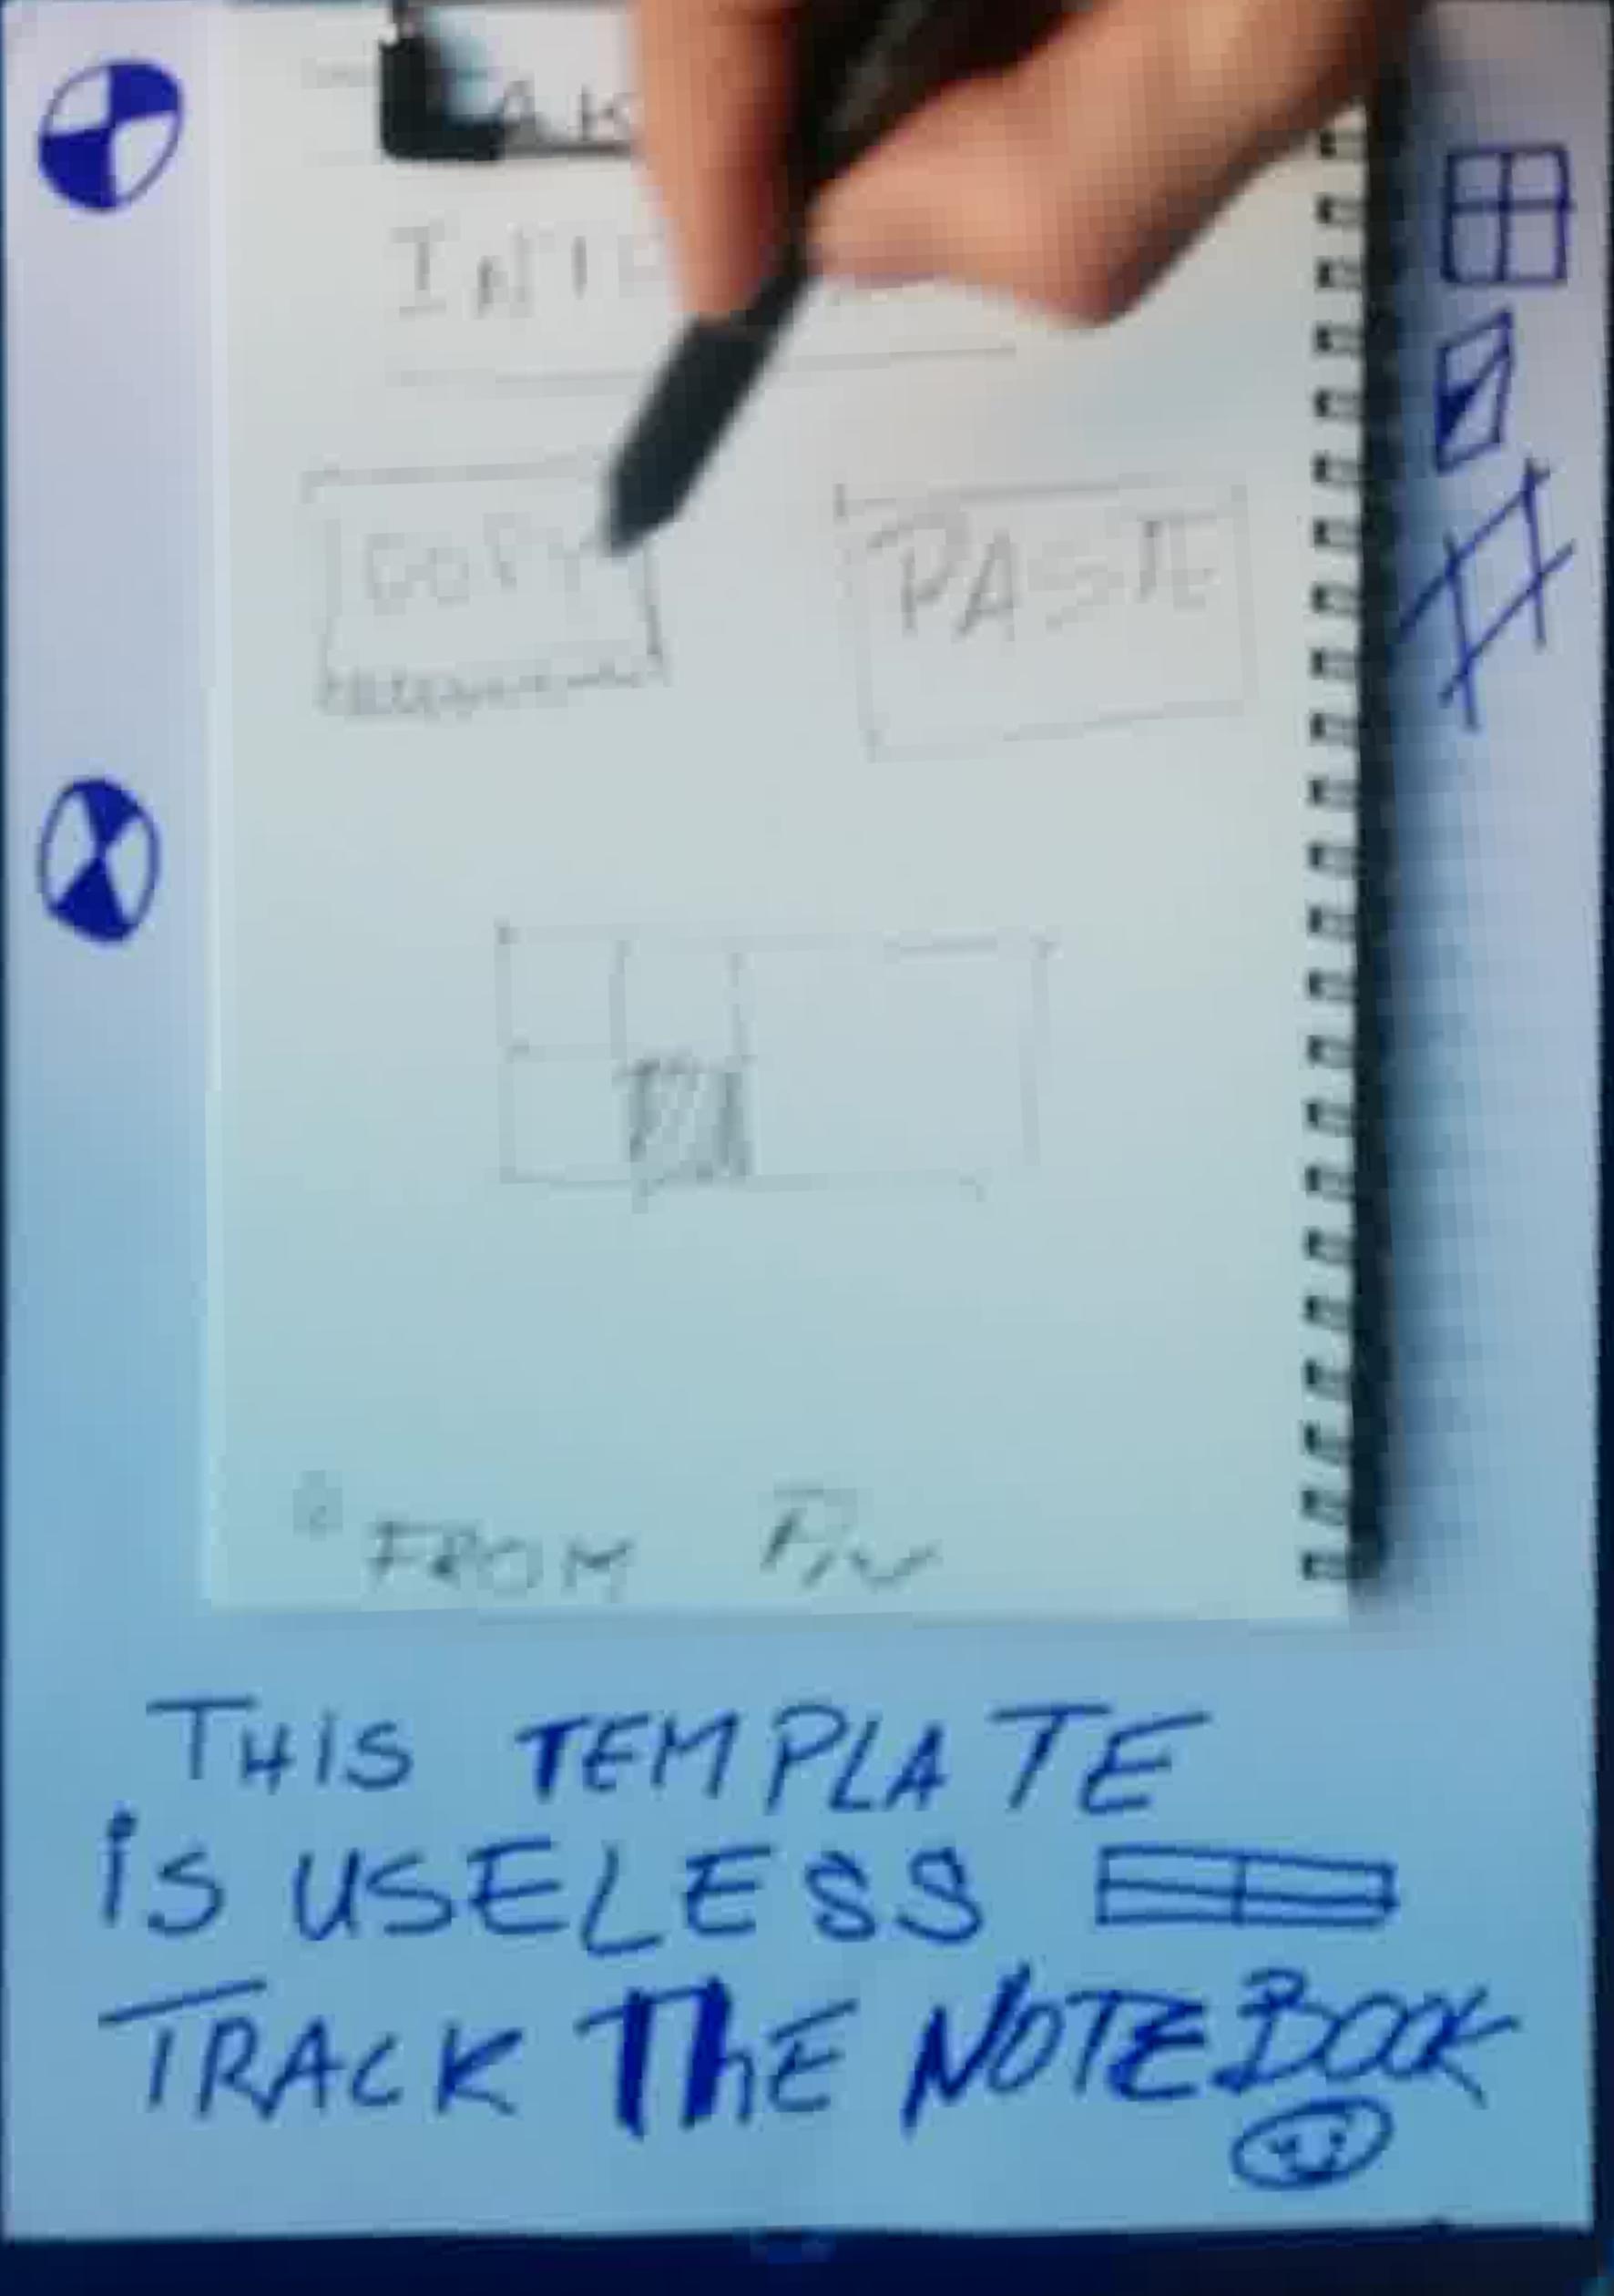 COPY
PASTE
FROM
THIS TEMPLATE
is USELESS
TRACK ThE NOTEBOOK